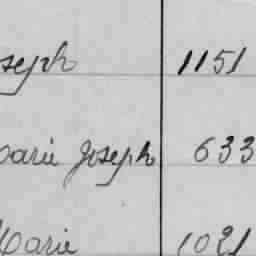 oseph 1151
Marie Joseph 633
Marie 1021